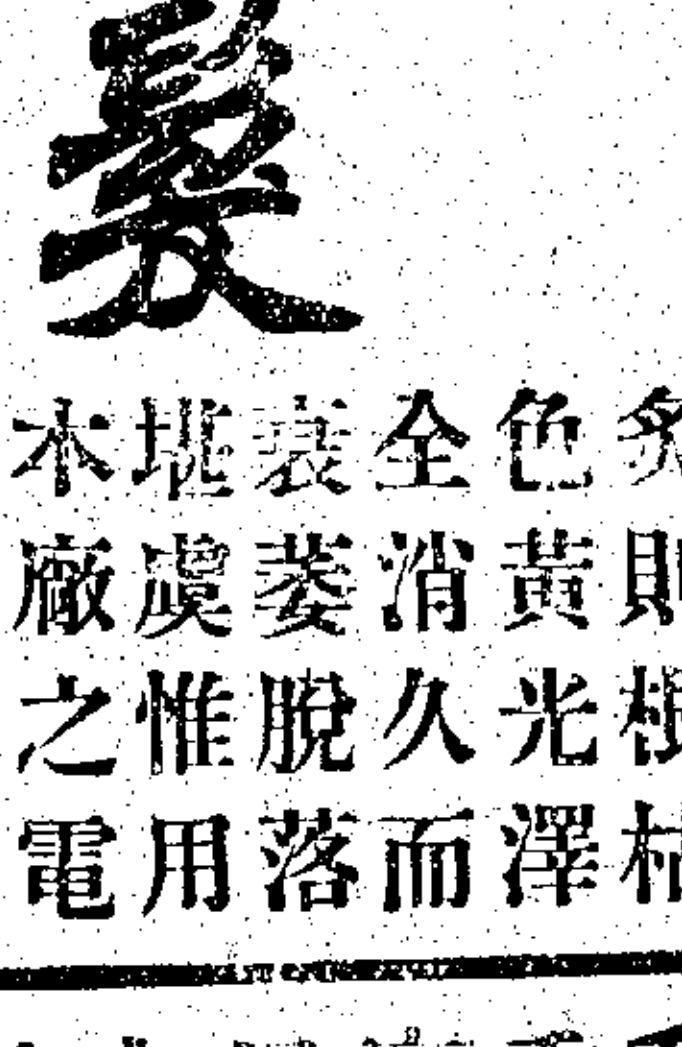 髮
炙則根枯
色黃光澤
全消久而
衰萎脫落
堪虞惟用
本廠之電